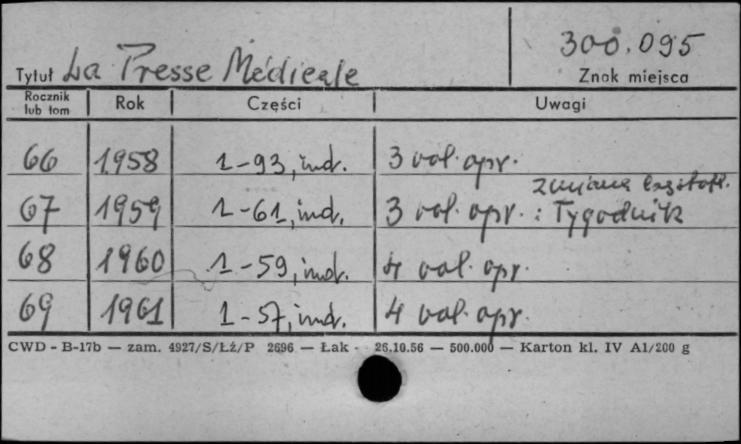 300.095
Tytuł La Presse Médicale Znak miejsca
Rocznik lub tom Rok Części Uwagi
66 1958 1-93, ind. 3 vol. opr.
zmiana częstotl.
67 1959 1-61, ind. 3 vol. opr. : Tygodnik
68 1960 1-59, ind. 4 vol. opr.
69 1961 1-57, ind. 4 vol. opr.
CWD - B-17b — zam. 4927/S/Łź/P 2696 — Łak - 26.10.56 — 500.000 — Karton kl. IV A1/200 g